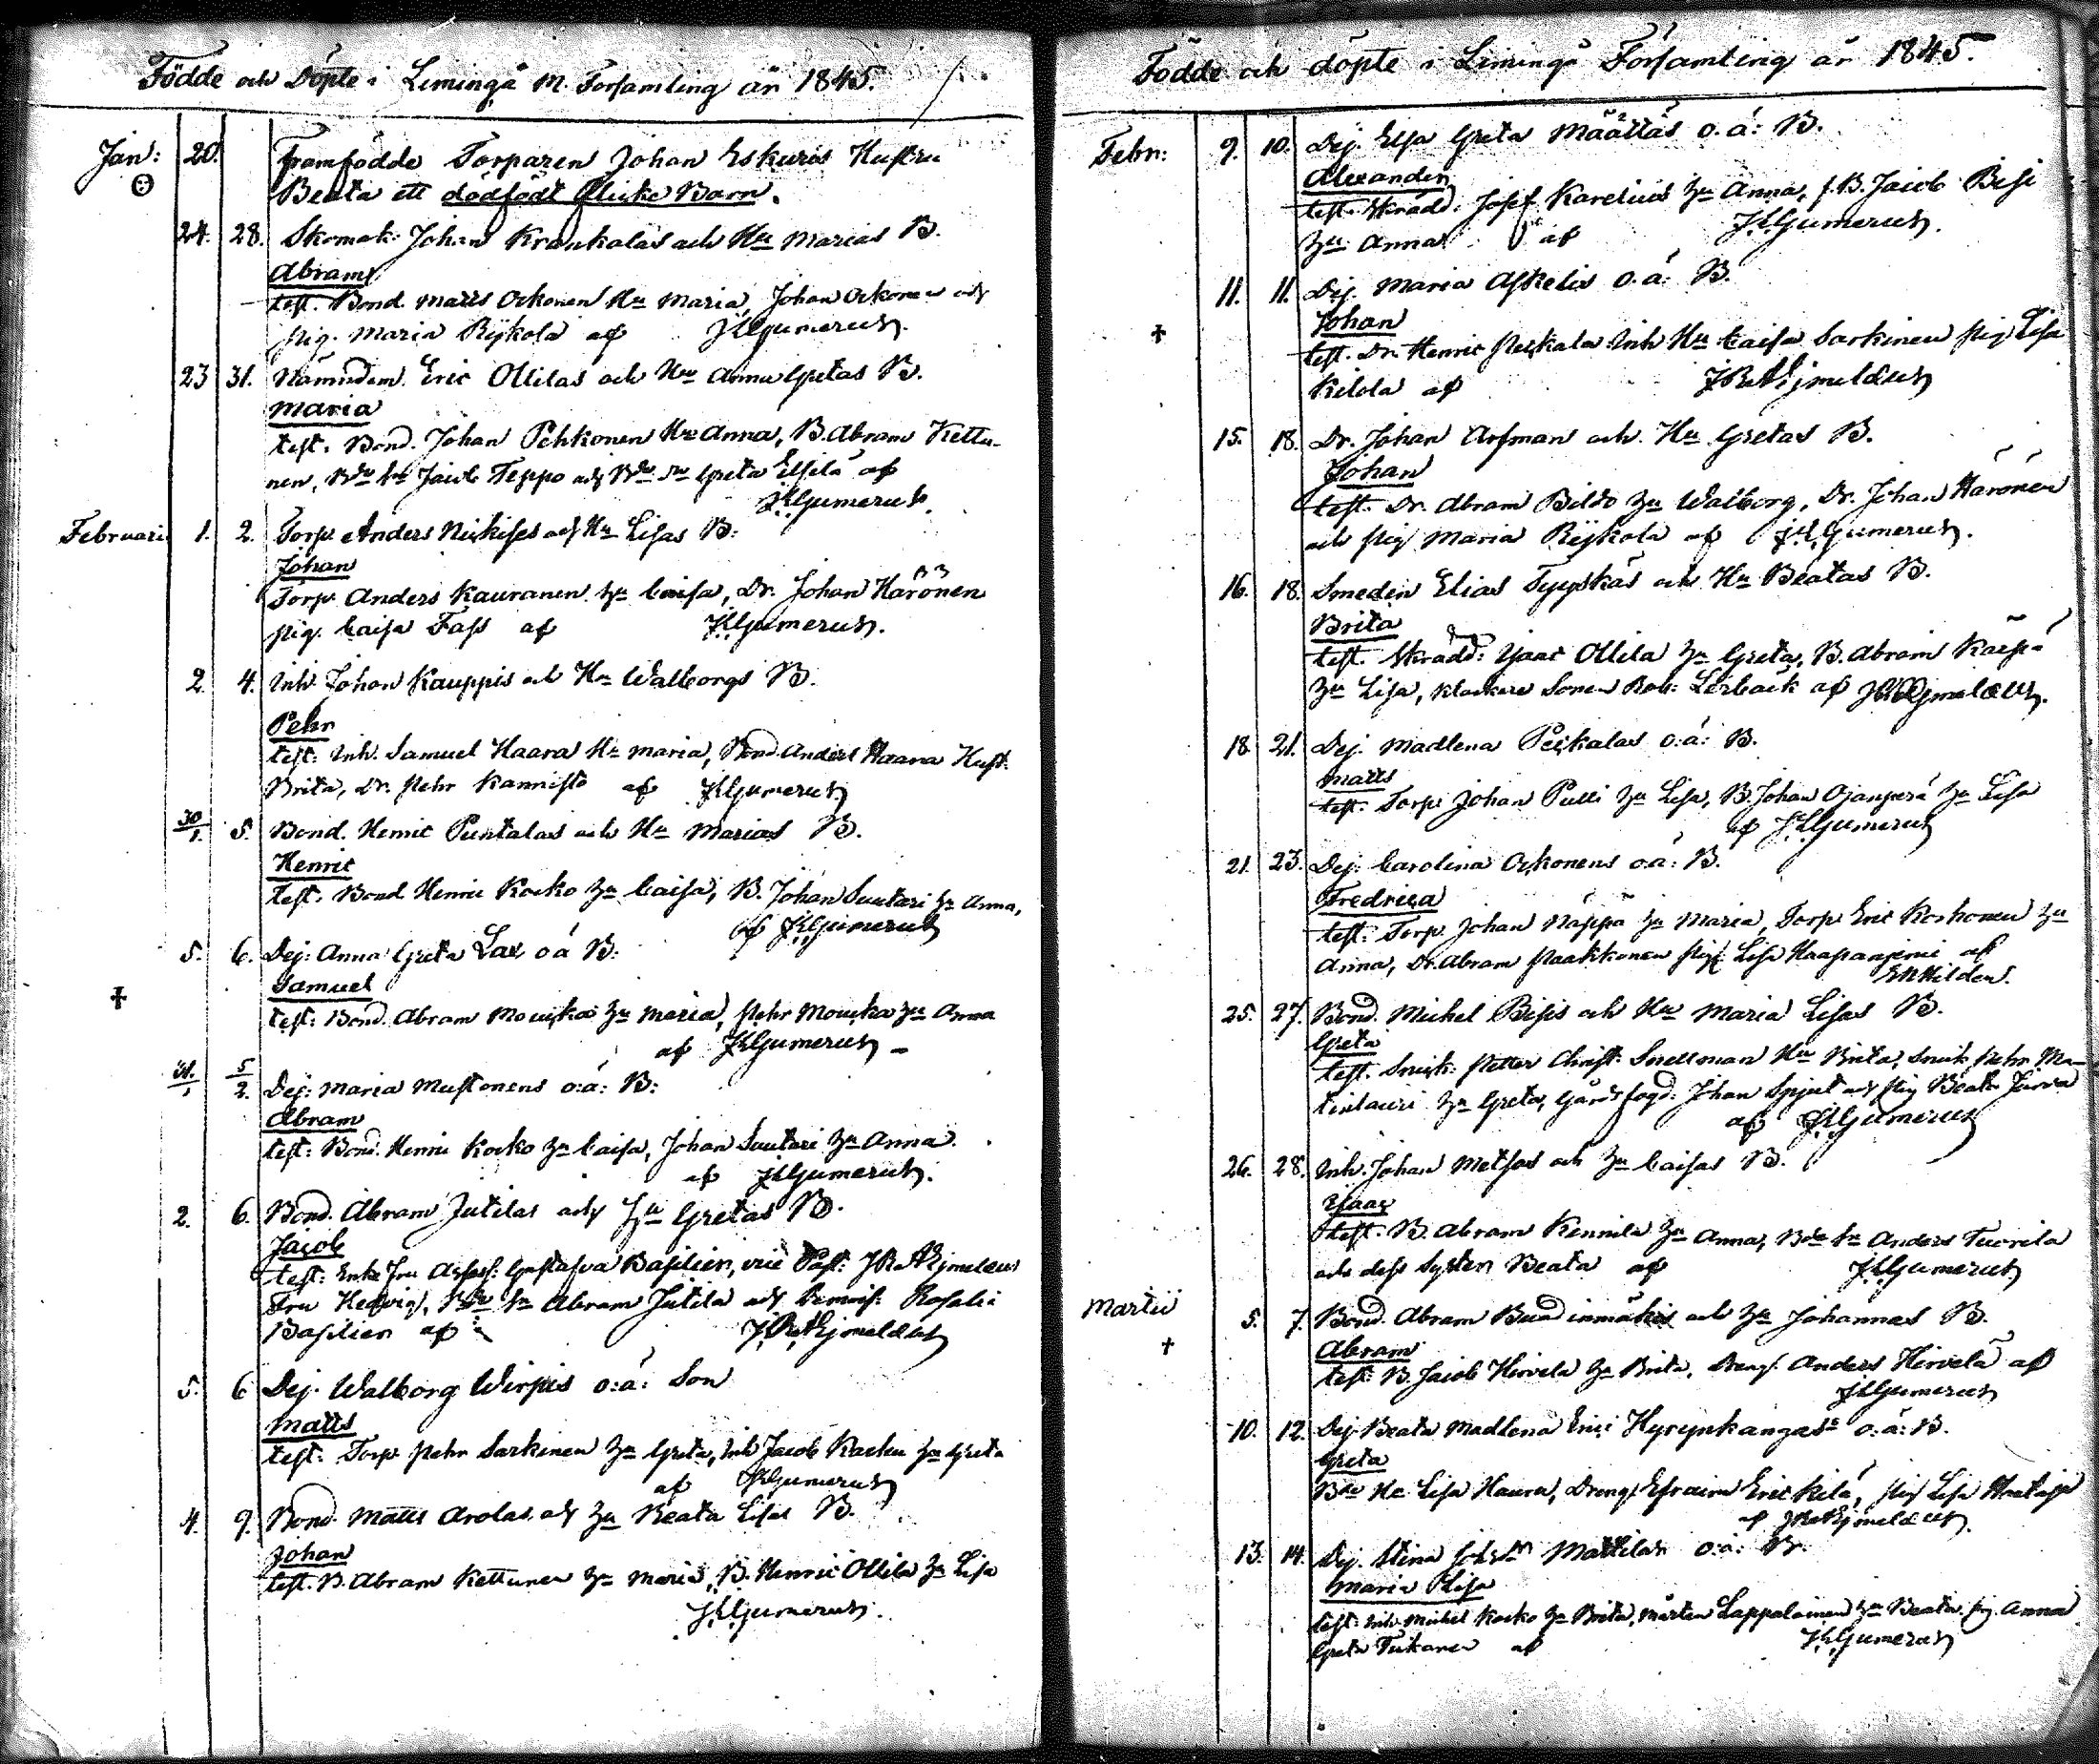 Födde och Döpte i Limingå M. Församling år 1845.
Jan: 20. Framfödde Torparen Johan Eskuris Hustru
Beata ett dödfödt Flicke Barn.
24. 28. Skomak. Johan Krankalas och Hu Marias B.
Abram
test. Bond. Matts Ockonen Hu Maria, Johan Ockonen och
pig. Maria Rijkola af JKGumerus.
23 31. Nämndem. Eric Ollilas och Hu Anna Gretas B.
Maria
test. Bond. Johan Pehkonen Hu Anna, B. Abram Kettu-
nen, Bde Sn Jacob Teppo och Bde Dr Greta Elsilä af
JKGumerus.
Februari 1. 2. Torp. Anders Niskises och Hu Lisas B.
Johan
Torp. Anders Kauranen Hu Caisa, Dr. Johan Härönen
pig. Caisa Fass af JKGumerus.
2. 4. Inh. Johan Kauppis och Hu Walborgs B.
Pehr
test. Inh. Samuel Haara Hu Maria, Bond. Anders Haara Hust.
Brita, Dr. Pehr Kannisto af JKGumerus
30/1. 5. Bond. Henric Puntalas och Hu Marias B.
Henric
test. Bond Henric Kocko Hu Caisa, B. Johan Suutari Hu Anna,
af JKGumerus
5. 6. Dej: Anna Greta Lax o ä B.
Samuel
test: Bond. Abram Mouska Hu Maria, Pehr Mouska Hu Anna
af JKGumerus
31./1 5/2. Dej: Maria Mustonens o:ä: B:
Abram
test: Bond. Henric Kocko Hu Caisa, Johan Suutari Hu Anna.
af JKGumerus.
2. 6. Bond. Abram Jutilas och Hu Gretas B.
Jacob
test: Enke Fru Assess: Gustafva Basilier, vice Past:
Fru Hedvig, Bde Sn Abram Jutila och Demois: Rosalie
Basilier af
5. 6 Dej. Walborg Wirpis o:ä: Son
Matts
test: Torp. Pehr Sarkinen Hu Greta, Inh Jacob Kacku Hu Greta
af JKGumerus
4. 9. Bond. Matts Arolas och Hu Beata Lisas B.
Johan
test. B. Abram Kettunen Hu Maria, B. Henric Ollila Hu Lisa
JKGumerus.
Födde och döpte i Limingå Församling år 1845.
Febr: 9. 10. Dej. Elsa Greta Määttäs o.ä: B.
Alexander
test. Skrädd. Josef Karelius Hu Anna, f.B. Jacob Bisi
Hu Anna af JKGumerus.
11. 11. Dej. Maria Askelis o.ä: B.
Johan
test. Dr. Henric Peskala Inh Hu Caisa Sarkinen pig Lisa
Kilola af
15. 18. Dr. Johan Arfman och Hu Gretas B.
Johan
test. Dr. Abram Bildo Hu Walborg, Dr. Johan Härönen
och pig Maria Rijkola af JKGumerus.
16. 18. Smeden Elias Tyyskäs och Hu Beatas B.
Brita
test. Skrädd: Isaac Ollila Hu Greta, B. Abram Karpa
Hu Lisa, Klockare Sonen Rob: Lörbäck af
18. 21. Dej. Madlena Peskalas o:ä: B.
Matts
test. Torp. Johan Pulli Hu Lisa, B. Johan Ojanperä Hu Lisa
af JKGumerus
21. 23. Dej. Carolina Ockonens o:ä: B.
Fredrica
test: Torp. Johan Näppä Hu Maria, Torp. Eric Korhonen Hu
Anna, Dr. Abram Paakkonen Pig. Lisa Haapaniemi af
25. 27. Bond. Michel Bisis och Hu Maria Lisas B.
Greta
test. Snick: Petter Christ. Snellman Hu Brita, Snick. Pehr Ma-
tinlauri Hu Greta, Gårdsfogd. Johan Spjut och Pig Beata Jurva
af JKGumerus
26. 28. Inh. Johan Metsos och Hu Caisas B.
Isaac
test. B. Abram Kinnila Hu Anna, Bde Sn Anders Tuorila
och dess Syster Beata af JKGumerus
Martii 5. 7. Bond. Abram Buudinmäkis och Hu Johannas B.
Abram
test: B. Jacob Hirvelä Hu Brita, Dreng. Anders Hirvelä af
JKGumerus
10. 12. Dej. Beata Madlena Erici Hyrynkangas o:ä: B.
Greta
Bde Hu Lisa Haara, Dreng Efraim Erickilä, pig Lisa
13. 14. Dej. Stina Mattilas o:ä: B.
Maria Lisa
test: Inh. Michel Kocko Hu Brita, Mårten Lappalainen Hu Beata, pig. Anna
Greta Tukanen af JKGumerus